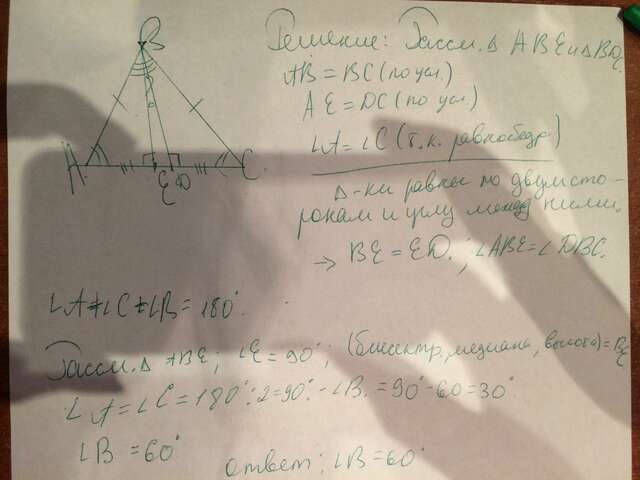 B
A
E D
C
Решение: Рассм. Δ ABE и Δ BD
AB = BC (по усл.)
AE = DC (по усл.)
∠A = ∠C (т.к. равнобедр)
Δ-ки равны по двум сто-
ронам и углу между ними.
→ BE = ED. ; ∠ABE = ∠DBC.
∠A + ∠C + ∠B = 180°.
Рассм. Δ ABE; ∠E = 90°; (биссектр., медиана, высота) = BE
∠A = ∠C = 180°:2 = 90° - ∠B. = 90° - 60 = 30°
∠B = 60°
ответ: ∠B = 60°